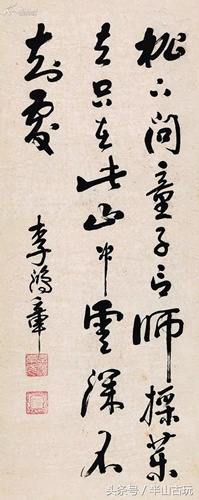 松下問童子言師採藥
去只在此山中雲深不
知處
李鴻章
头条号 / 半山古玩